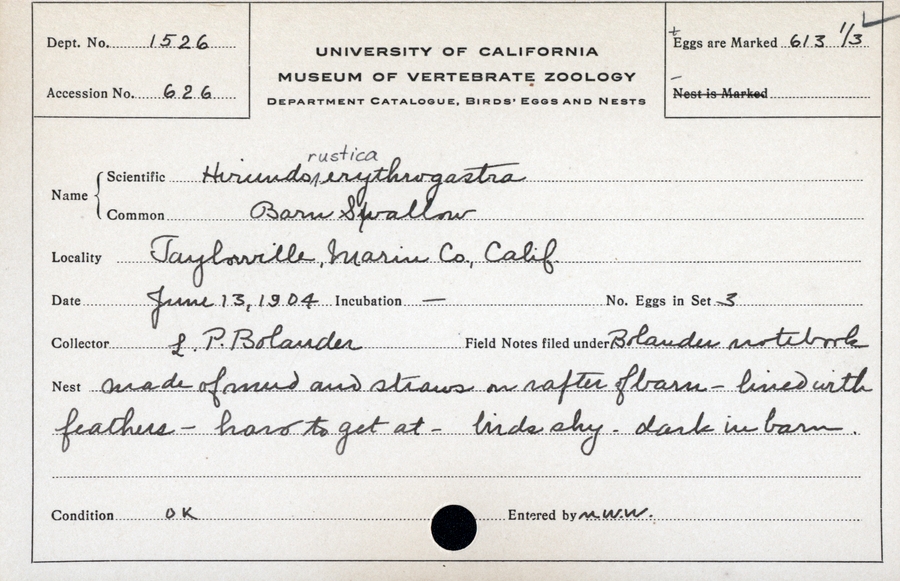 Dept. No. 1526
Accession No. 626
UNIVERSITY OF CALIFORNIA
MUSEUM OF VERTEBRATE ZOOLOGY
DEPARTMENT CATALOGUE, BIRDS' EGGS AND NESTS
Eggs are Marked 613 1/3
Nest is Marked
rustica
Name Scientific Hirundo erythrogastra
Common Barn Swallow
Locality Taylorville, Marin Co., Calif.
Date June 13, 1904 Incubation — No. Eggs in Set 3
Collector L. P. Bolander Field Notes filed under Bolander notebook
Nest made of mud and straws on rafter of barn - lined with
feathers - hard to get at - birds shy - dark in barn.
Condition OK Entered by M.W.W.